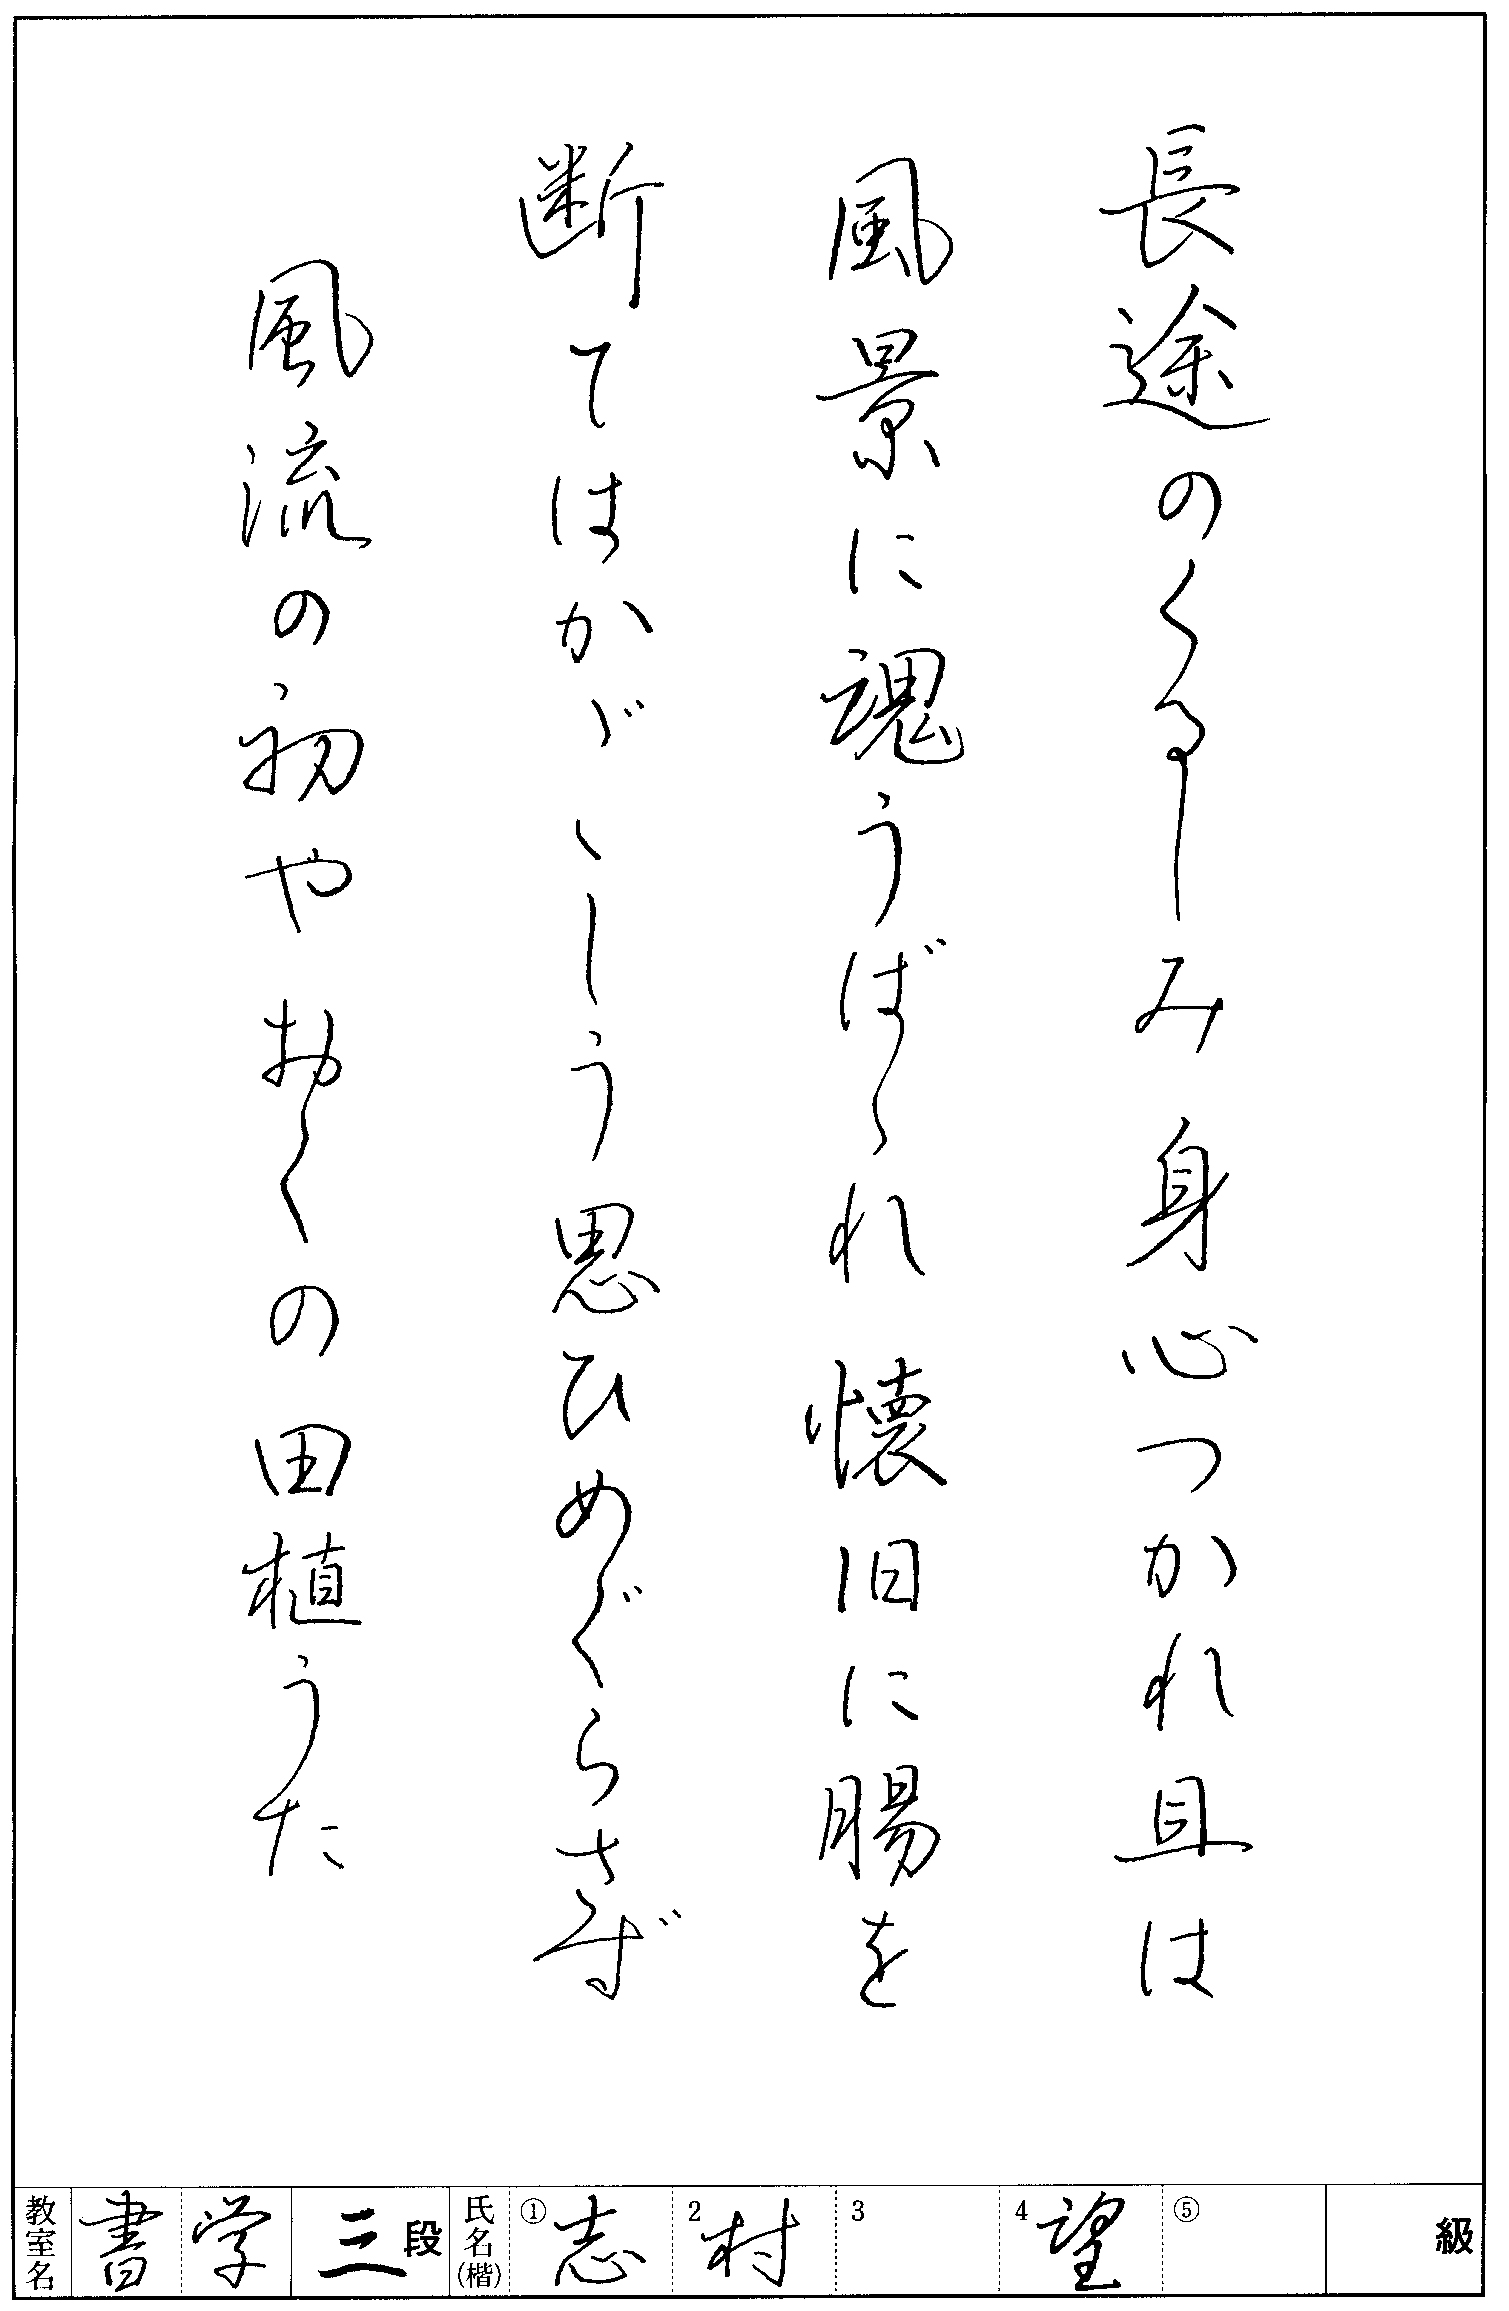 長途のくるしみ身心つかれ且は
風景に魂うばゝれ懐旧に腸を
断てはかゞゝしう思ひめぐらさず
風流の初やおくの田植うた
教室名 書学 三段 氏名(楷) ①志 2村 3 4望 ⑤ 級